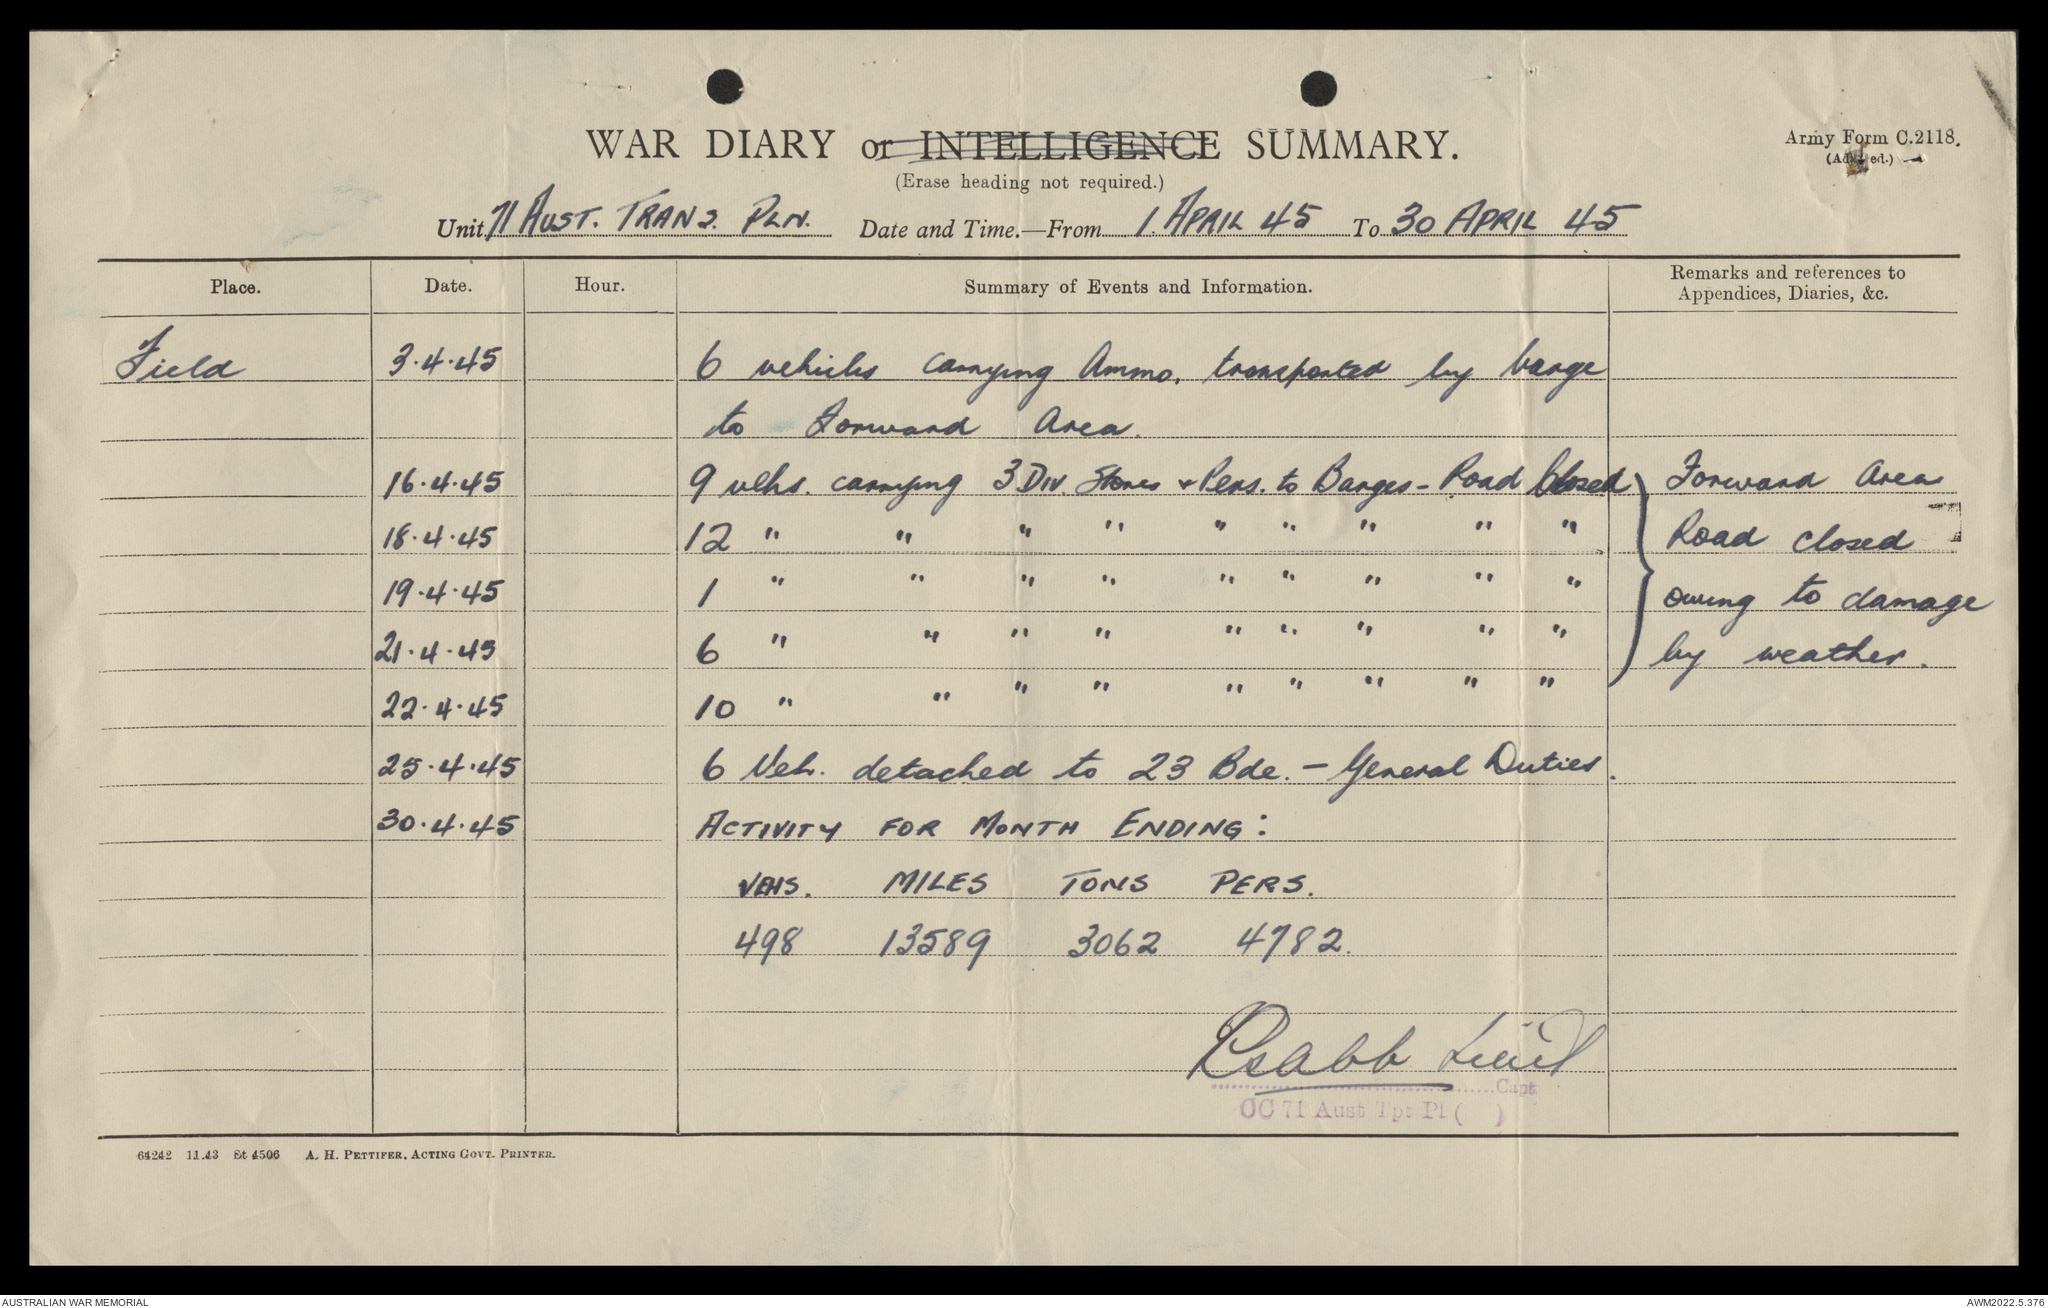 WAR DIARY or INTELLIGENCE SUMMARY.
Army Form C.2118.
(Adapted.)
(Erase heading not required.)
Unit 71 AUST. TRANS. PLN. Date and Time.—From 1. APRIL 45 To 30 APRIL 45
Place. Date. Hour. Summary of Events and Information. Remarks and references to Appendices, Diaries, &c.
Field 3.4.45 6 vehicles carrying Ammo. transported by barge
to Forward Area.
16.4.45 9 vehs. carrying 3 Div. Stores & Pers. to Barges - Road closed } Forward Area
18.4.45 12 " " " " " " " " " Road closed
19.4.45 1 " " " " " " " " " owing to damage
21.4.45 6 " " " " " " " " " by weather.
22.4.45 10 " " " " " " " " "
25.4.45 6 Veh. detached to 23 Bde. - General Duties.
30.4.45 ACTIVITY FOR MONTH ENDING:
VEHS. MILES TONS PERS.
498 13589 3062 4782.
Lieut
Capt
OC 71 Aust Tpt Pl ( )
64242 11.43 St 4506 A. H. PETTIFER, ACTING GOVT. PRINTER.
AUSTRALIAN WAR MEMORIAL AWM2022.5.376